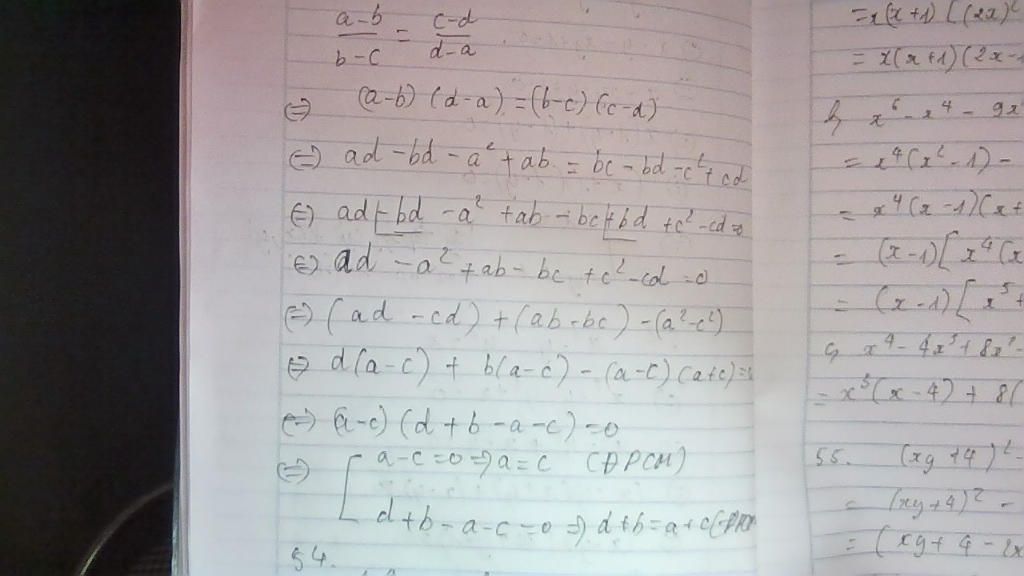 a-b/b-c = c-d/d-a
⇔ (a-b) (d-a) = (b-c) (c-d)
⇔ ad - bd - a² + ab = bc - bd - c² + cd
⇔ ad - bd - a² + ab - bc + bd + c² - cd = 0
⇔ ad - a² + ab - bc + c² - cd = 0
⇔ (ad - cd) + (ab - bc) - (a² - c²)
⇔ d(a-c) + b(a-c) - (a-c) (a+c) =
⇔ (a-c) (d+b-a-c) = 0
⇔ [ a-c=0 ⇒ a=c (ĐPCM)
d+b-a-c=0 ⇒ d+b=a+c (ĐPCM
54.
= x(x+1) [(2x)²
= x(x+1) (2x-1
b, x⁶ - x⁴ - 9x
= x⁴(x²-1) -
= x⁴(x-1)(x+
= (x-1)[x⁴(x
= (x-1) [x⁵+
c, x⁴ - 4x³ + 8x² -
= x³(x-4) + 8(
55. (xy+4)² -
= (xy+4)² -
= (xy+4-2x